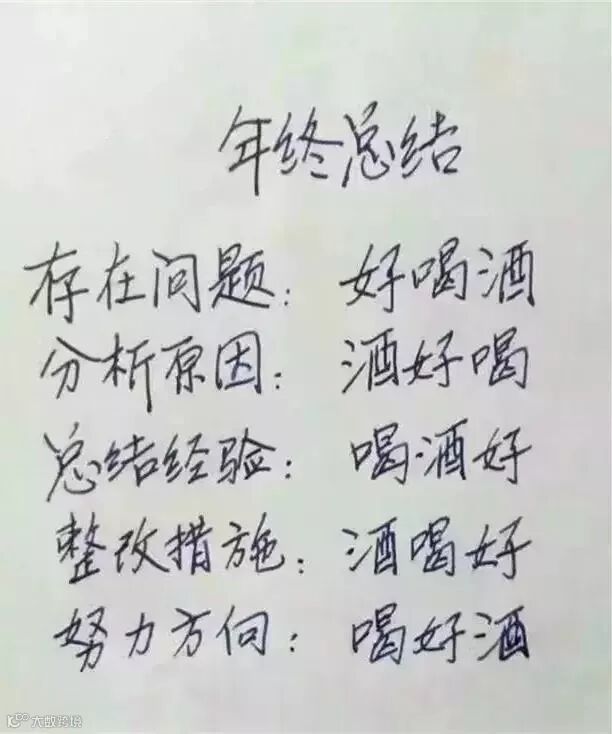 年终总结
存在问题：好喝酒
分析原因：酒好喝
总结经验：喝酒好
整改措施：酒喝好
努力方向：喝好酒
K100 大数跨境